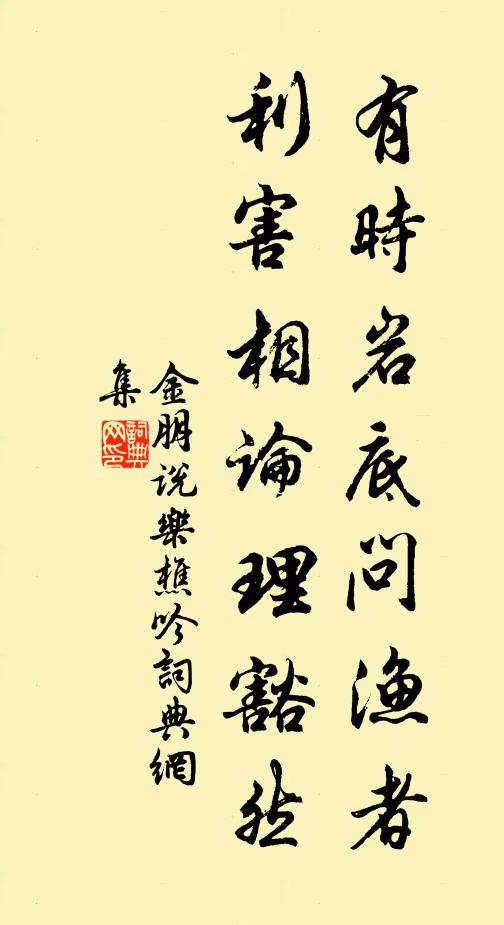 有時岩底問漁者
利害相論理豁然
金朋說樂樵吟詞典網
集
詞典
网印